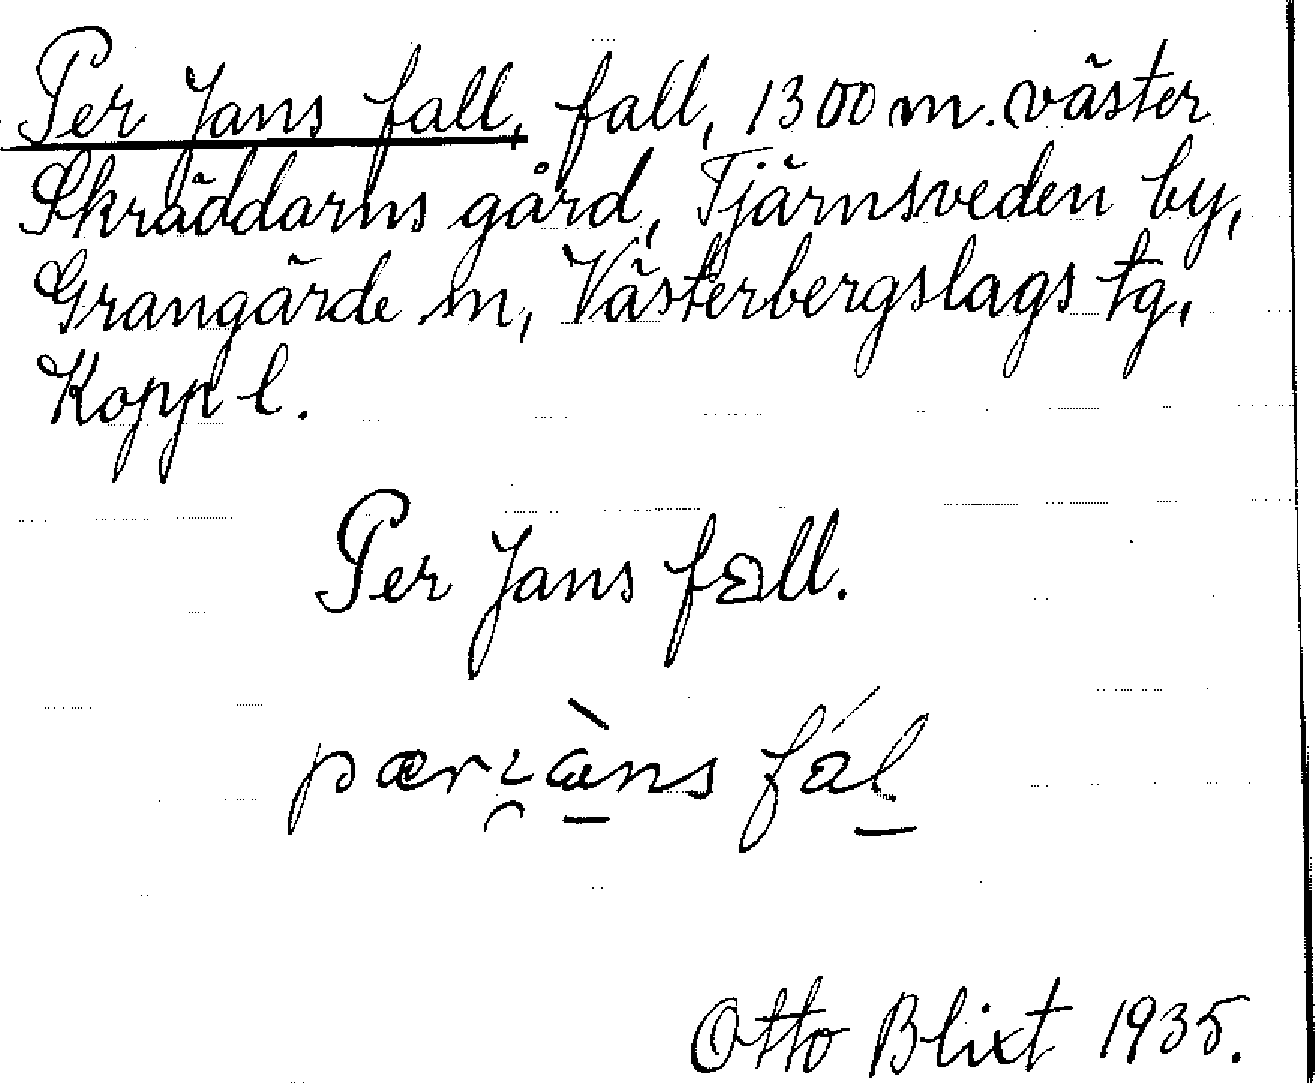 Per Jans fall, fall, 1300 m. väster
Skräddarns gård, Tjärnsveden by,
Grangärde sn, Västerbergslags tg,
Kopp l.
Per Jans fall.
pærı̯àns fál
Otto Blixt 1935.